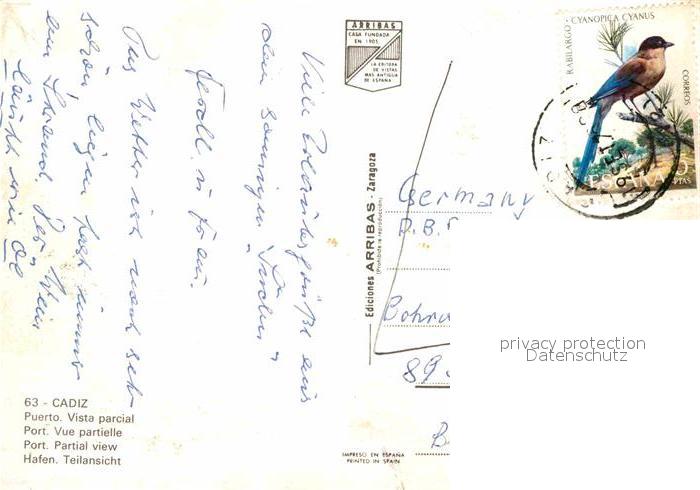 Viele Urlaubsgrüße aus
dem sonnigen Süden
Gerold u. Frau.
Das Wetter ist noch sehr
schön liegen fast immer
am Strand. Der Wein
läuft wie Öl
ARRIBAS
CASA FUNDADA
EN 1905
LA EDITORA
DE VISTAS
MAS ANTIGUA
DE ESPAÑA
Ediciones ARRIBAS - Zaragoza
(Prohibida la reproducción)
RABILARGO · CYANOPICA CYANUS
CORREOS
ESPAÑA
PTAS
Germany
Bohru
89
B
privacy protection
Datenschutz
63 - CADIZ
Puerto. Vista parcial
Port. Vue partielle
Port. Partial view
Hafen. Teilansicht
IMPRESO EN ESPAÑA
PRINTED IN SPAIN